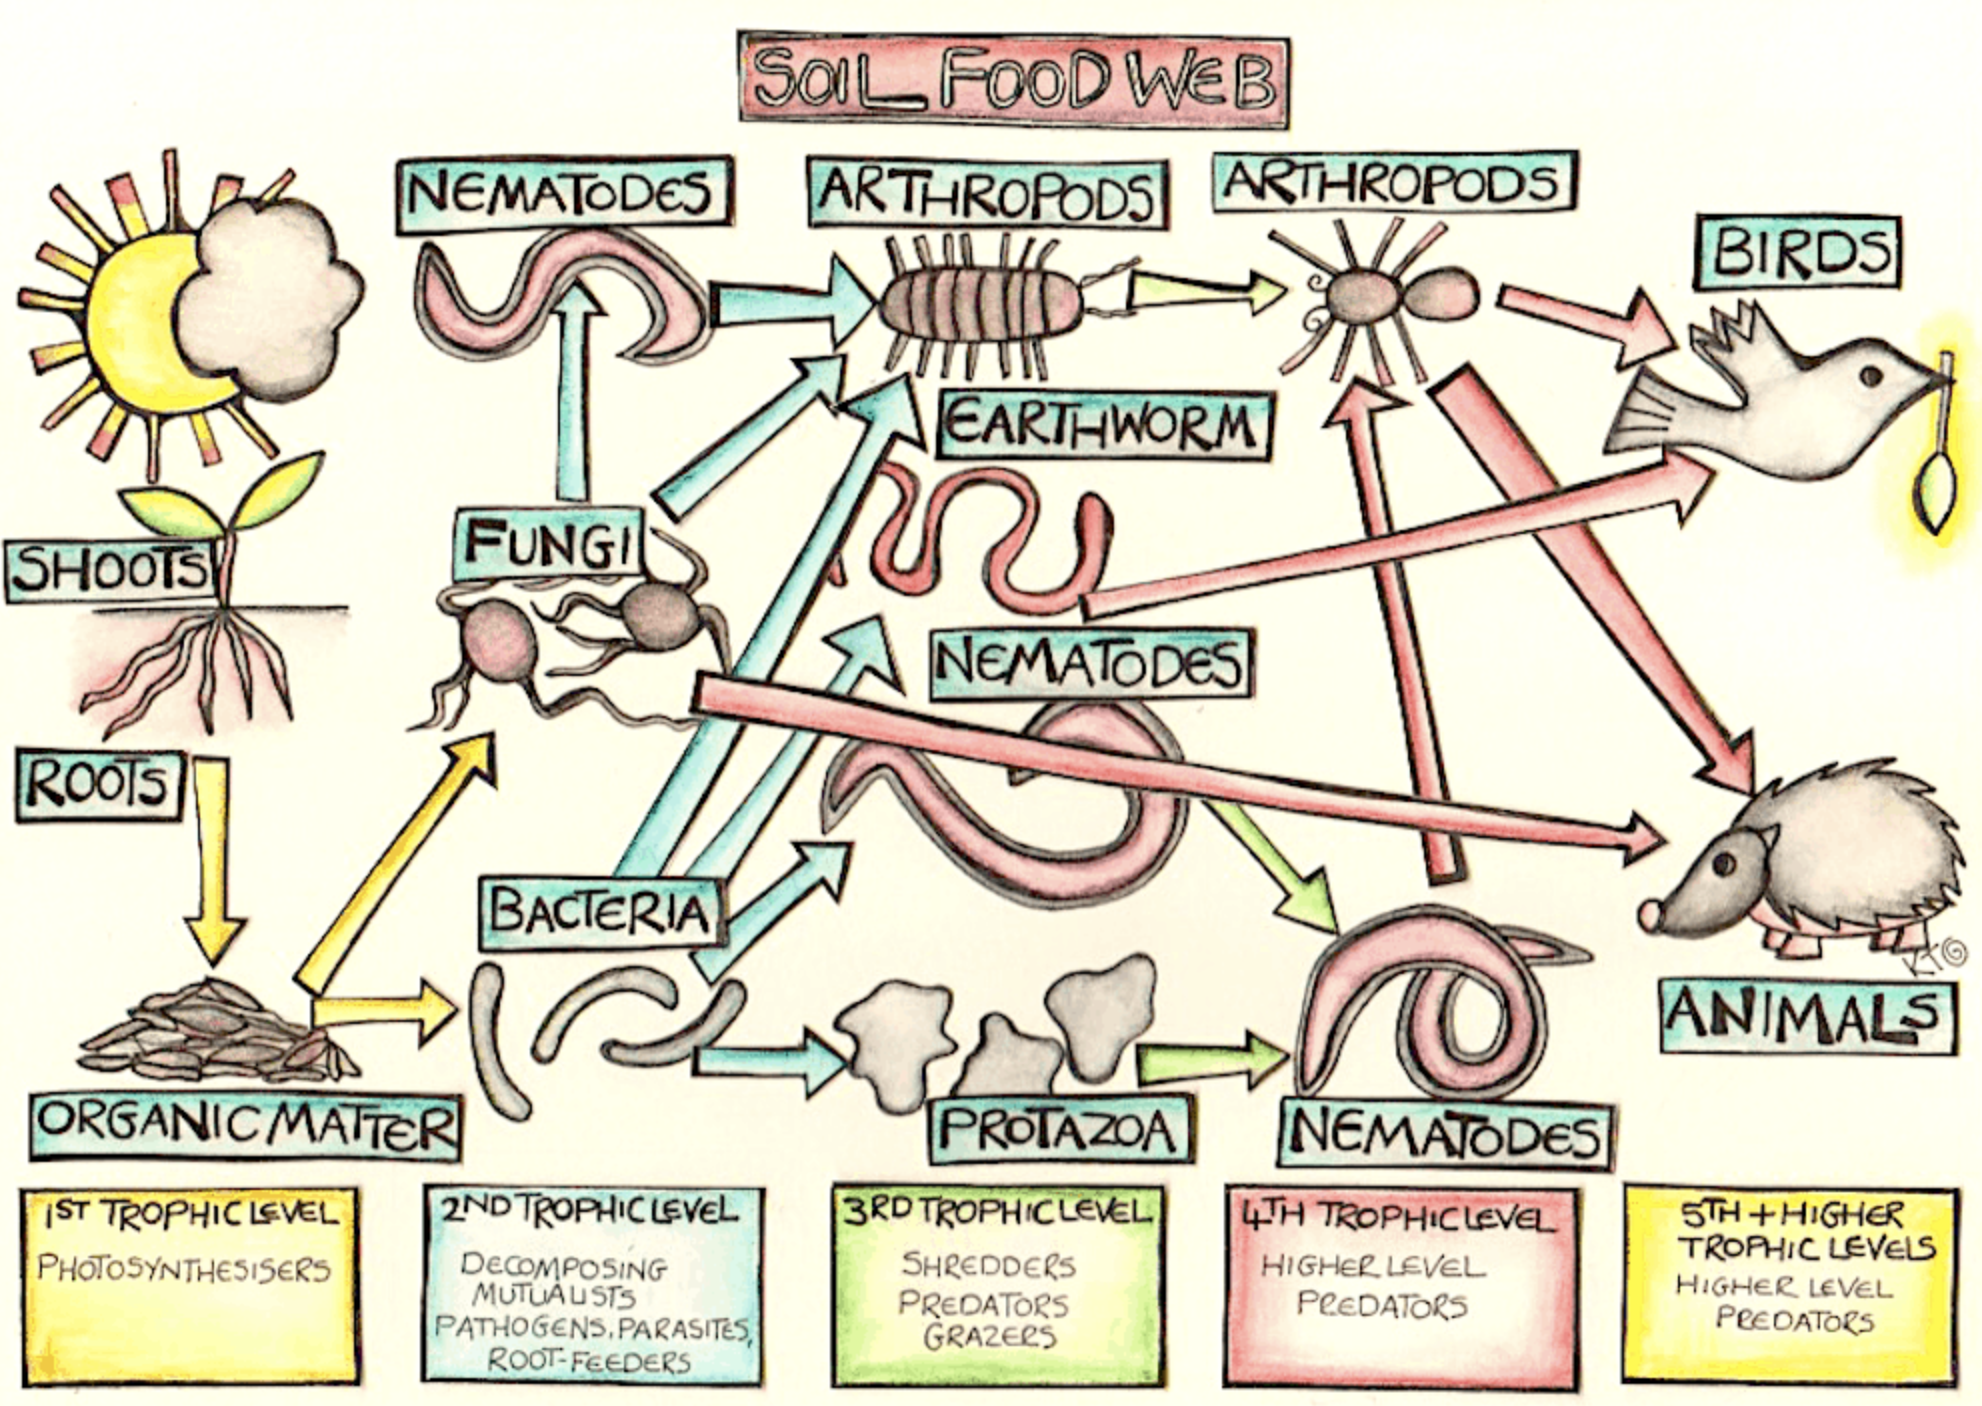 SOIL FOOD WEB
NEMATODES
ARTHROPODS
ARTHROPODS
BIRDS
EARTHWORM
FUNGI
SHOOTS
NEMATODES
ROOTS
BACTERIA
ANIMALS
ORGANIC MATTER
PROTAZOA
NEMATODES
1ST TROPHIC LEVEL
PHOTOSYNTHESISERS
2ND TROPHIC LEVEL
DECOMPOSING
MUTUALISTS
PATHOGENS, PARASITES,
ROOT-FEEDERS
3RD TROPHIC LEVEL
SHREDDERS
PREDATORS
GRAZERS
4TH TROPHIC LEVEL
HIGHER LEVEL
PREDATORS
5TH + HIGHER
TROPHIC LEVELS
HIGHER LEVEL
PREDATORS